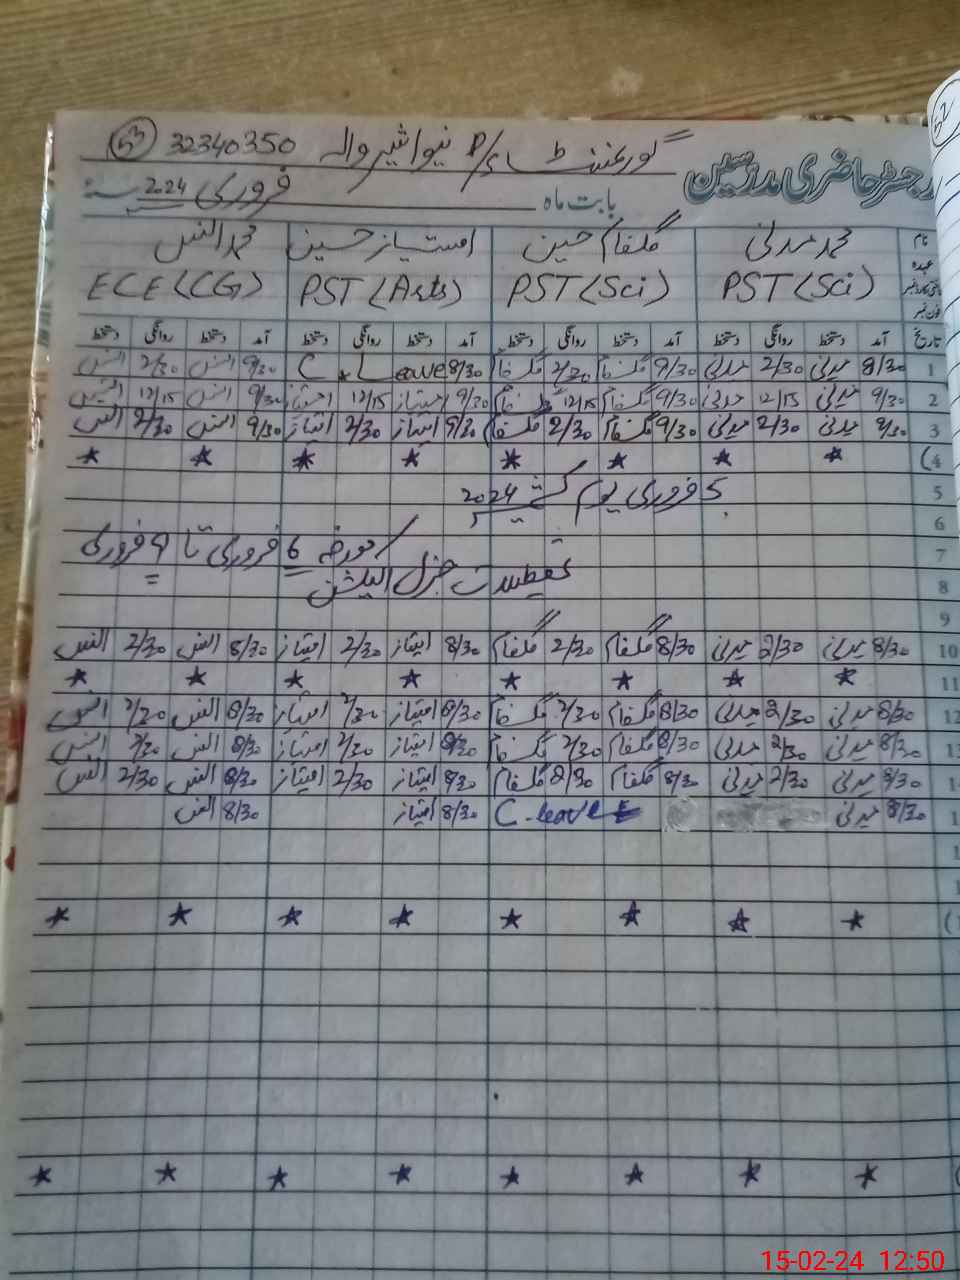 رجسٹر حاضری مدرسین گورنمنٹ P/S نیوا شیر والہ 32340350 53
52
بابت ماہ فروری 2024
نام محمد مدنی گلفام حسین امتیاز حسین محمد انس
عہدہ PST (Sci) PST (Sci) PST (Arts) ECE (CG)
فون نمبر
تاریخ آمد دستخط روانگی دستخط آمد دستخط روانگی دستخط آمد دستخط روانگی دستخط آمد دستخط روانگی دستخط
1 8/30 مدنی 2/30 مدنی 9/30 گلفام 2/30 گلفام 8/30 C. Leave 9/30 انس 2/30 انس
2 9/30 مدنی 12/15 مدنی 9/30 گلفام 12/15 گلفام 9/30 امتیاز 12/15 امتیاز 9/30 انس 12/15 انس
3 9/30 مدنی 2/30 مدنی 9/30 گلفام 2/30 گلفام 9/30 امتیاز 2/30 امتیاز 9/30 انس 2/30 انس
(4 * * * * * * * *
5 5 فروری یوم 2024
6
7 مورخہ 6 فروری تا 9 فروری
8 تعطیلات جنرل الیکشن
9
10 8/30 مدنی 2/30 مدنی 8/30 گلفام 2/30 گلفام 8/30 امتیاز 2/30 امتیاز 8/30 انس 2/30 انس
11 * * * * * * * *
12 8/30 مدنی 2/30 مدنی 8/30 گلفام 2/30 گلفام 8/30 امتیاز 2/30 امتیاز 8/30 انس 2/30 انس
13 8/30 مدنی 2/30 مدنی 8/30 گلفام 2/30 گلفام 8/30 امتیاز 2/30 امتیاز 8/30 انس 2/30 انس
8/30 مدنی 2/30 مدنی 8/30 گلفام 2/30 گلفام 8/30 امتیاز 2/30 امتیاز 8/30 انس 2/30 انس
8/30 مدنی C-leave 8/30 امتیاز 8/30 انس
* * * * * * * *
* * * * * * * *
15-02-24 12:50